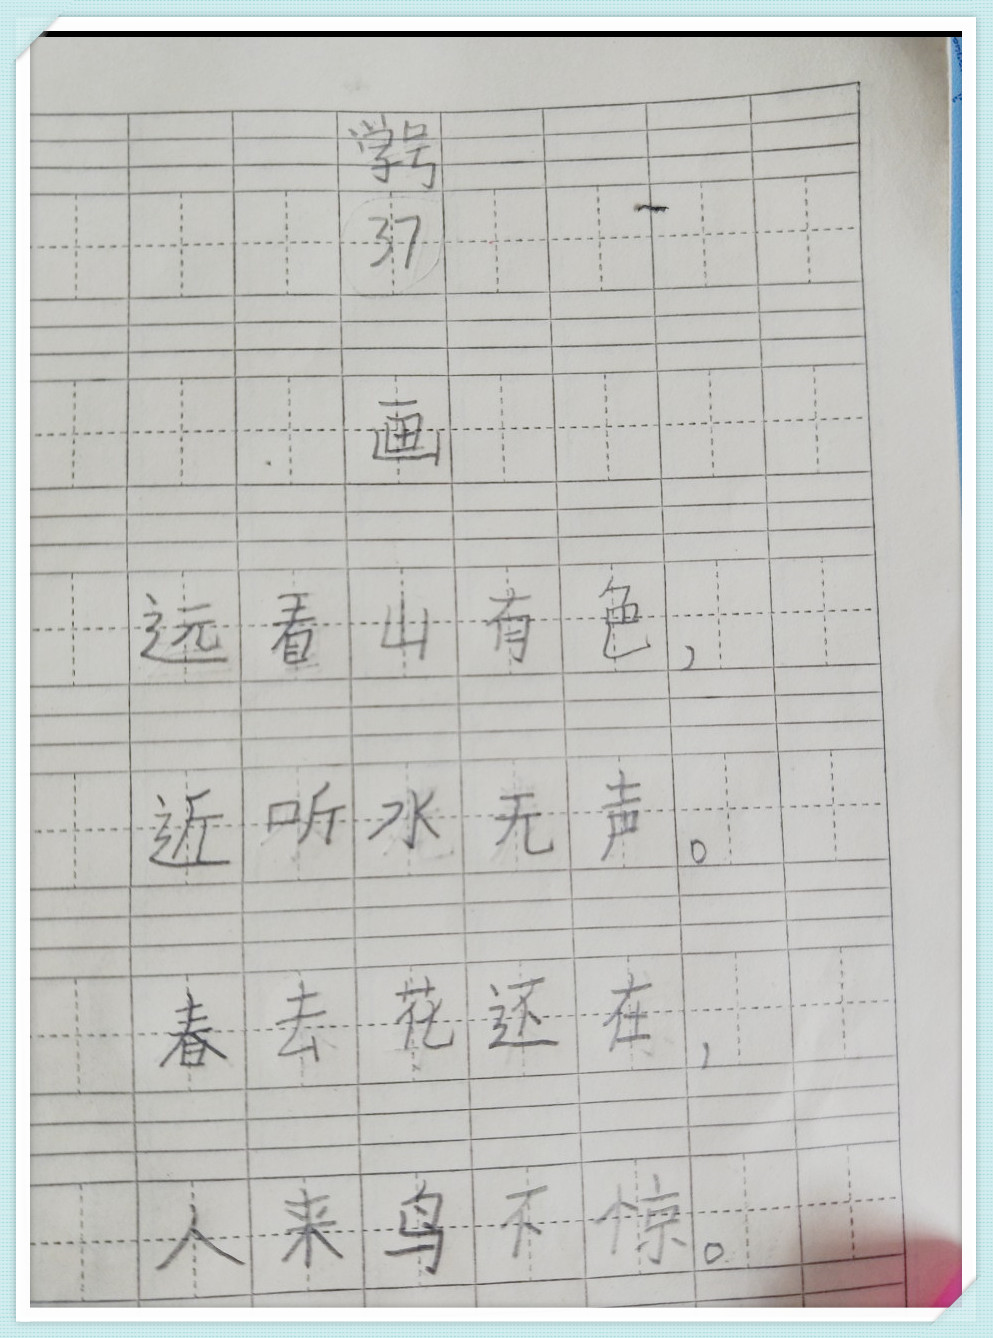 学号
37
画
远看山有色,
近听水无声。
春去花还在,
人来鸟不惊。